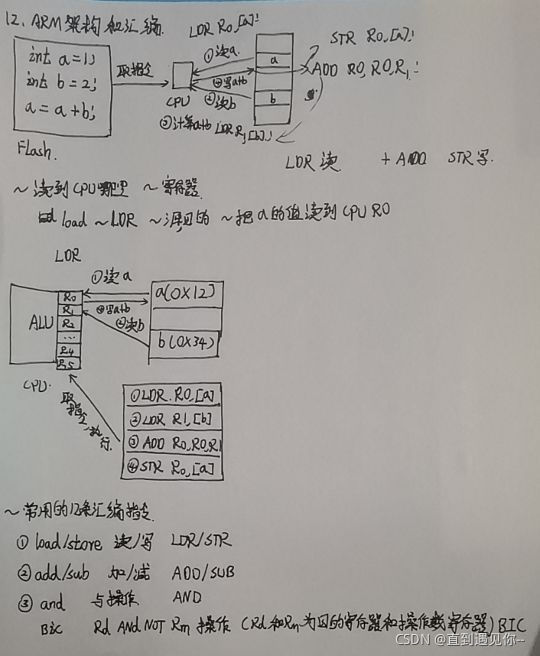 12. ARM架构和汇编
LDR R0,[a];
STR R0,[a];
int a=1;
int b=2;
a=a+b;
取指令
CPU
①读a
④写a+b
②读b
③计算a+b
a
b
ADD R0,R0,R1;
LDR R1,[b];
Flash.
LDR 读 + ADD STR 写
~ 读到CPU哪里 ~ 寄存器
load ~ LDR ~ ~ 把a的值读到CPU R0
LDR
①读a
④写a+b
②读b
ALU
R0
R1
R2
...
R4
R5
a(0X12)
b(0X34)
CPU.
取指令,执行
①LDR R0,[a]
②LDR R1,[b]
③ADD R0,R0,R1
④STR R0,[a]
~ 常用的12条汇编指令
① load/store 读/写 LDR/STR
② add/sub 加/减 ADD/SUB
③ and 与操作 AND
Bic Rd AND NOT Rm 操作 (Rd和Rm为目的寄存器和操作数寄存器) BIC
CSDN @直到遇见你--